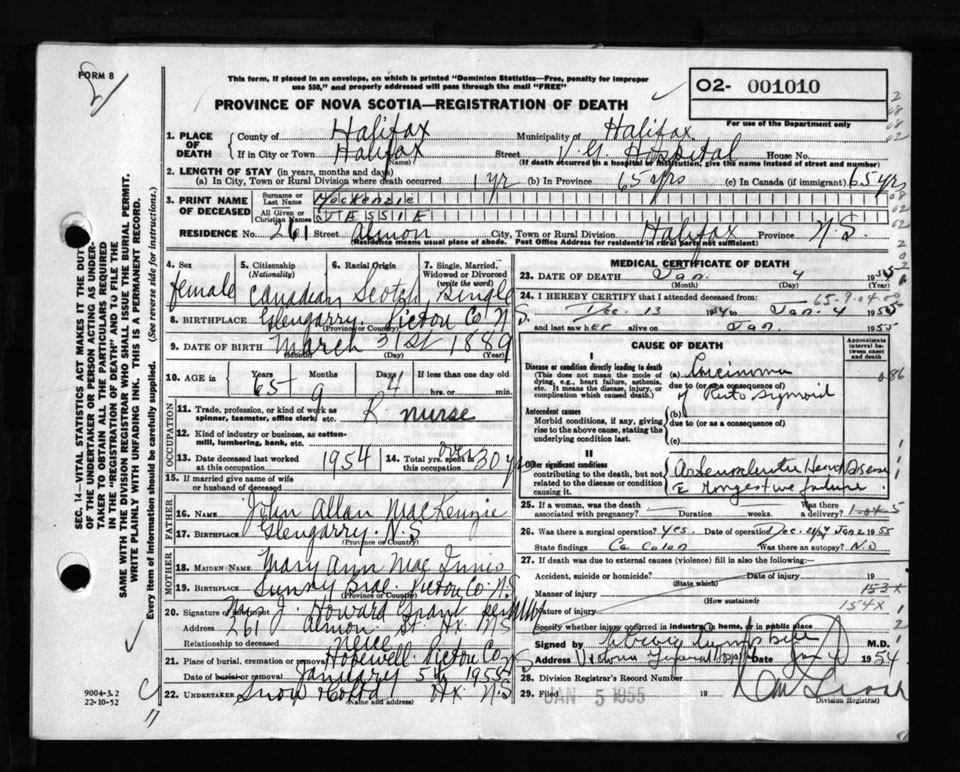 FORM 8
This form, if placed in an envelope, on which is printed "Dominion Statistics—Free, penalty for improper
use $50," and properly addressed will pass through the mail "FREE"
PROVINCE OF NOVA SCOTIA—REGISTRATION OF DEATH
02- 001010
For use of the Department only
SEC. 14—VITAL STATISTICS ACT MAKES IT THE DUTY
OF THE UNDERTAKER OR PERSON ACTING AS UNDER-
TAKER TO OBTAIN ALL THE PARTICULARS REQUIRED
IN THE "REGISTRATION OF DEATH" AND TO FILE THE
SAME WITH THE DIVISION REGISTRAR WHO SHALL ISSUE THE BURIAL PERMIT.
WRITE PLAINLY WITH UNFADING INK. THIS IS A PERMANENT RECORD.
Every item of information should be carefully supplied. (See reverse side for instructions.)
1. PLACE OF DEATH County of Halifax Municipality of Halifax
If in City or Town Halifax Street V.G. Hospital House No.
(Name) (If death occurred in a hospital or institution, give the name instead of street and number)
2. LENGTH OF STAY (in years, months and days)
(a) In City, Town or Rural Division where death occurred 1 yr (b) In Province 65 yrs (c) In Canada (if immigrant) 65 yrs
3. PRINT NAME OF DECEASED Surname or Last Name MacKenzie
All Given or Christian Names JESSIE
RESIDENCE No. 261 Street Almon City, Town or Rural Division Halifax Province N.S.
(Residence means usual place of abode. Post Office Address for residents in rural parts not sufficient)
4. Sex female
5. Citizenship (Nationality) Canadian
6. Racial Origin Scotch
7. Single, Married, Widowed or Divorced (write the word) Single
8. BIRTHPLACE Glengarry, Pictou Co N.S.
(Province or Country)
9. DATE OF BIRTH March 31st 1889
(Month) (Day) (Year)
10. AGE in Years 65 Months 9 Days 4 If less than one day
hrs. or min.
OCCUPATION
11. Trade, profession, or kind of work as
spinner, teamster, office clerk, etc. R. nurse
12. Kind of industry or business, as cotton-
mill, lumbering, bank, etc.
13. Date deceased last worked
at this occupation 1954
14. Total yrs. spent in
this occupation over 30 yrs
15. If married give name of wife
or husband of deceased
FATHER
16. Name John Allan MacKenzie
17. Birthplace Glengarry N.S
(Province or Country)
MOTHER
18. Maiden Name Mary Ann Mac Innis
19. Birthplace Sunny Brae Pictou Co. N.S.
(Province or Country)
20. Signature of informant Mrs J. Howard Grant per
Address 261 Almon St. Hx. N.S
Relationship to deceased Neice
21. Place of burial, cremation or removal Hopewell Pictou Co N.S
Date of burial or removal January 5th 1955
22. UNDERTAKER Snow & Co Ltd Hx N.S
(Name and address)
9004-3.2
22-10-52
MEDICAL CERTIFICATE OF DEATH
23. DATE OF DEATH Jan. 4 1955
(Month) (Day)
24. I HEREBY CERTIFY that I attended deceased from:
65-9-04-02
Dec. 13 1954 to Jan. 4 1955
and last saw her alive on Jan. 1955
CAUSE OF DEATH
Approximate interval between onset and death
I
Disease or condition directly leading to death
(This does not mean the mode of
dying, e.g., heart failure, asthenia,
etc. It means the disease, injury, or
complication which caused death.)
(a) Carcinoma
due to (or as a consequence of)
of Recto Sigmoid
Antecedent causes
Morbid conditions, if any, giving
rise to the above cause, stating the
underlying condition last.
(b)
due to (or as a consequence of)
(c)
II
Other significant conditions
contributing to the death, but not
related to the disease or condition
causing it.
Arteriosclerotic Heart Disease
c̄ congestive failure
25. If a woman, was the death
associated with pregnancy? Duration weeks. Was there a delivery?
26. Was there a surgical operation? Yes. Date of operation Dec. 21/54 Jan 2 1955
State findings Ca. Colon Was there an autopsy? No
27. If death was due to external causes (violence) fill in also the following:—
Accident, suicide or homicide? Date of injury 19
(State which)
Manner of injury 153X
(How sustained)
Nature of injury 154X
Specify whether injury occurred in industry, in home, or in public place
Signed by M.D.
Address Victoria General Hosp Date Jan 4 1954
28. Division Registrar's Record Number
29. Filed JAN 5 1955 19
Division Registrar)